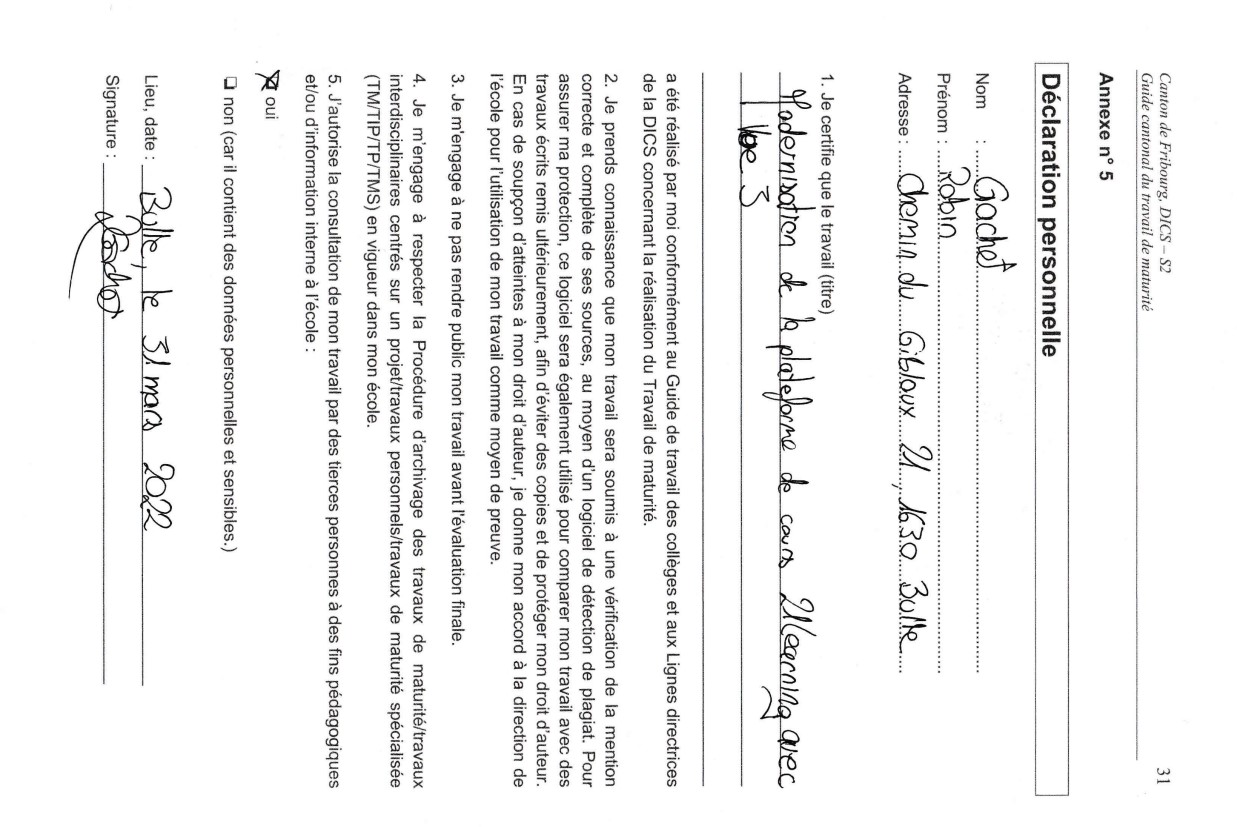 Canton de Fribourg, DICS – S2
Guide cantonal du travail de maturité
31
Annexe n° 5
Déclaration personnelle
Nom : Gachet
Prénom : Robin
Adresse : Chemin du Gibloux 21, 1630 Bulle
1. Je certifie que le travail (titre)
Modernisation de la plateforme de cours 21learning avec
Vue 3
a été réalisé par moi conformément au Guide de travail des collèges et aux Lignes directrices
de la DICS concernant la réalisation du Travail de maturité.
2. Je prends connaissance que mon travail sera soumis à une vérification de la mention
correcte et complète de ses sources, au moyen d'un logiciel de détection de plagiat. Pour
assurer ma protection, ce logiciel sera également utilisé pour comparer mon travail avec des
travaux écrits remis ultérieurement, afin d'éviter des copies et de protéger mon droit d'auteur.
En cas de soupçon d'atteintes à mon droit d'auteur, je donne mon accord à la direction de
l'école pour l'utilisation de mon travail comme moyen de preuve.
3. Je m'engage à ne pas rendre public mon travail avant l'évaluation finale.
4. Je m'engage à respecter la Procédure d'archivage des travaux de maturité/travaux
interdisciplinaires centrés sur un projet/travaux personnels/travaux de maturité spécialisée
(TM/TIP/TP/TMS) en vigueur dans mon école.
5. J'autorise la consultation de mon travail par des tierces personnes à des fins pédagogiques
et/ou d'information interne à l'école :
oui
non (car il contient des données personnelles et sensibles.)
Lieu, date : Bulle, le 31 mars 2022
Signature : Gachet